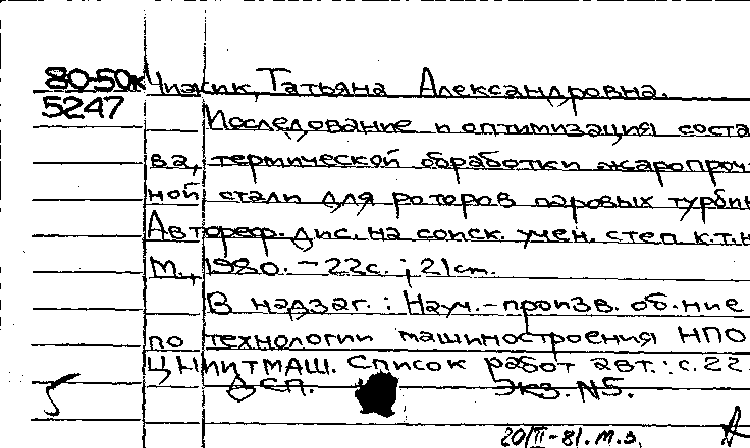 80-50к Чижик, Татьяна Александровна.
5247
Исследование и оптимизация соста
ва, термической обработки жаропроч
ной стали для роторов паровых турбин
Автореф. дис. на соиск. учен. степ. к.т.н
М., 1980. - 22с.; 21 см.
В надзаг.: Науч.-произв. об-ние
по технологии машиностроения НПО
ЦНИИТМАШ. Список работ авт.: с.22
ДСП. Экз. N5.
20/II-81. м.з.